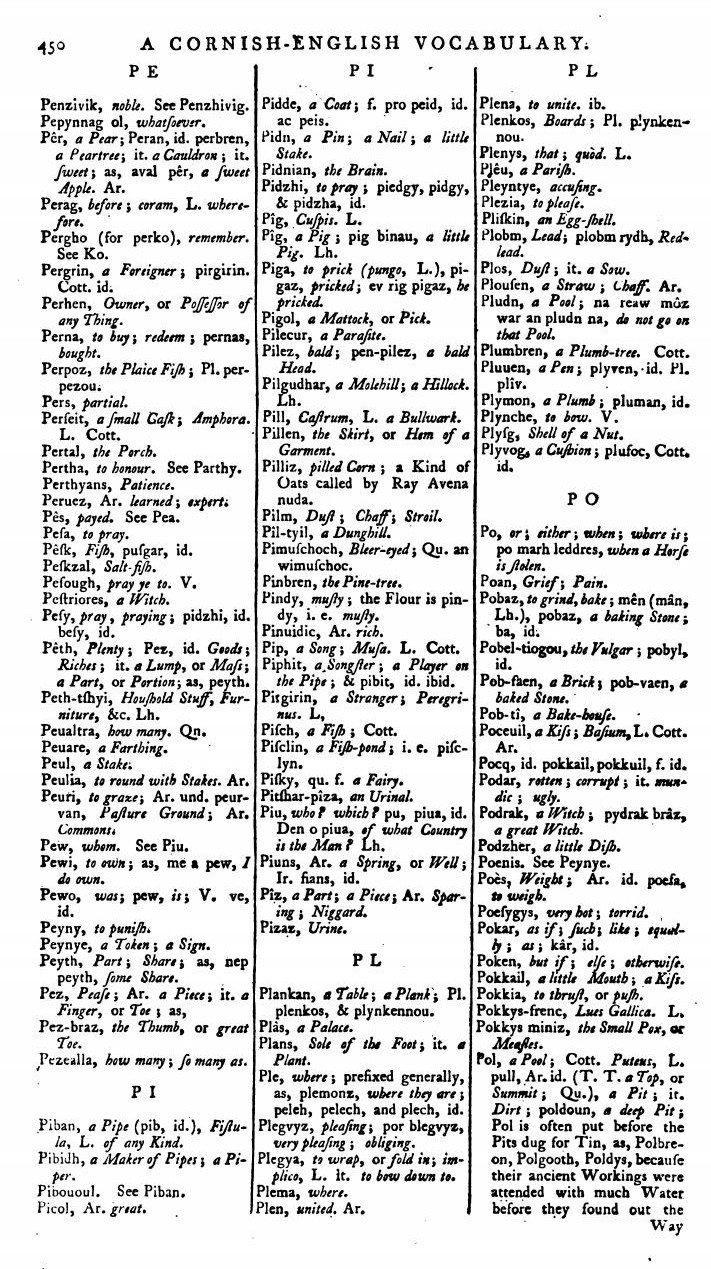 450 A CORNISH-ENGLISH VOCABULARY.
PE
Penzivik, noble. See Penzhivig.
Pepynnag ol, whatſoever.
Pêr, a Pear; Peran, id. perbren,
a Peartree; it. a Cauldron; it.
ſweet; as, aval pêr, a ſweet
Apple. Ar.
Perag, before; coram, L. where-
fore.
Pergho (for perko), remember.
See Ko.
Pergrin, a Foreigner; pirgirin.
Cott. id.
Perhen, Owner, or Poſſeſſor of
any Thing.
Perna, to buy; redeem; pernas,
bought.
Perpoz, the Plaice Fiſh; Pl. per-
pezou.
Pers, partial.
Perſeit, a ſmall Caſk; Amphora.
L. Cott.
Pertal, the Porch.
Pertha, to honour. See Parthy.
Perthyans, Patience.
Peruez, Ar. learned; expert.
Pês, payed. See Pea.
Peſa, to pray.
Pêſk, Fiſh, puſgar, id.
Peſkzal, Salt-fiſh.
Peſough, pray ye to. V.
Peſtriores, a Witch.
Peſy, pray, praying; pidzhi, id.
beſy, id.
Pêth, Plenty; Pez, id. Goods;
Riches; it. a Lump, or Maſs;
a Part, or Portion; as, peyth.
Peth-tſhyi, Houſhold Stuff, Fur-
niture, &c. Lh.
Peualtra, how many. Qn.
Peuare, a Farthing.
Peul, a Stake.
Peulia, to round with Stakes. Ar.
Peuri, to graze; Ar. und. peur-
van, Paſture Ground; Ar.
Commons.
Pew, whom. See Piu.
Pewi, to own; as, me a pew, I
do own.
Pewo, was; pew, is; V. ve,
id.
Peyny, to puniſh.
Peynye, a Token; a Sign.
Peyth, Part; Share; as, nep
peyth, ſome Share.
Pez, Peaſe; Ar. a Piece; it. a
Finger, or Toe; as,
Pez-braz, the Thumb, or great
Toe.
Pezealla, how many; ſo many as.
PI
Piban, a Pipe (pib, id.), Fiſtu-
la, L. of any Kind.
Pibidh, a Maker of Pipes; a Pi-
per.
Pibououl. See Piban.
Picol, Ar. great.
PI
Pidde, a Coat; f. pro peid, id.
ac peis.
Pidn, a Pin; a Nail; a little
Stake.
Pidnian, the Brain.
Pidzhi, to pray; piedgy, pidgy,
& pidzha, id.
Pîg, Cuſpis. L.
Pîg, a Pig; pig binau, a little
Pig. Lh.
Piga, to prick (pungo, L.), pi-
gaz, pricked; ev rig pigaz, he
pricked.
Pigol, a Mattock, or Pick.
Pilecur, a Paraſite.
Pilez, bald; pen-pilez, a bald
Head.
Pilgudhar, a Molehill; a Hillock.
Lh.
Pill, Caſtrum, L. a Bullwark.
Pillen, the Skirt, or Hem of a
Garment.
Pilliz, pilled Corn; a Kind of
Oats called by Ray Avena
nuda.
Pilm, Duſt; Chaff; Stroil.
Pil-tyil, a Dunghill.
Pimuſchoch, Bleer-eyed; Qu. an
wimuſchoc.
Pinbren, the Pine-tree.
Pindy, muſty; the Flour is pin-
dy, i. e. muſty.
Pinuidic, Ar. rich.
Pip, a Song; Muſa. L. Cott.
Piphit, a Songſter; a Player on
the Pipe; & pibit, id. ibid.
Pirgirin, a Stranger; Peregri-
nus. L.
Piſch, a Fiſh; Cott.
Piſclin, a Fiſh-pond; i. e. piſc-
lyn.
Piſky, qu. f. a Fairy.
Pitſhar-pîza, an Urinal.
Piu, who? which? pu, piua, id.
Den o piua, of what Country
is the Man? Lh.
Piuns, Ar. a Spring, or Well;
Ir. fians, id.
Pîz, a Part; a Piece; Ar. Spar-
ing; Niggard.
Pizaz, Urine.
PL
Plankan, a Table; a Plank; Pl.
plenkos, & plynkennou.
Plàs, a Palace.
Plans, Sole of the Foot; it. a
Plant.
Ple, where; prefixed generally,
as, plemonz, where they are;
peleh, pelech, and plech, id.
Plegvyz, pleaſing; por blegvyz,
very pleaſing; obliging.
Plegya, to wrap, or fold in; im-
plico, L. it. to bow down to.
Plema, where.
Plen, united. Ar.
PL
Plena, to unite. ib.
Plenkos, Boards; Pl. plynken-
nou.
Plenys, that; quòd. L.
Plêu, a Pariſh.
Pleyntye, accuſing.
Plezia, to pleaſe.
Pliſkin, an Egg-ſhell.
Plobm, Lead; plobm rydh, Red-
lead.
Plos, Duſt; it. a Sow.
Plouſen, a Straw; Chaff. Ar.
Pludn, a Pool; na reaw môz
war an pludn na, do not go on
that Pool.
Plumbren, a Plumb-tree. Cott.
Pluuen, a Pen; plyven, id. Pl.
pliv.
Plymon, a Plumb; pluman, id.
Plynche, to bow. V.
Plyſg, Shell of a Nut.
Plyvog, a Cuſhion; pluſoc, Cott.
id.
PO
Po, or; either; when; where is;
po marh leddres, when a Horſe
is ſtolen.
Poan, Grief; Pain.
Pobaz, to grind, bake; mên (mân,
Lh.), pobaz, a baking Stone;
ba, id.
Pobel-tiogou, the Vulgar; pobyl,
id.
Pob-faen, a Brick; pob-vaen, a
baked Stone.
Pob-ti, a Bake-houſe.
Poccuil, a Kiſs; Baſium, L. Cott.
Ar.
Pocq, id. pokkail, pokkuil, f. id.
Podar, rotten; corrupt; it. mun-
dic; ugly.
Podrak, a Witch; pydrak brâz,
a great Witch.
Podzher, a little Diſh.
Poenis. See Peynye.
Poès, Weight; Ar. id. poeſa,
to weigh.
Poeſygys, very hot; torrid.
Pokar, as if; ſuch; like; equal-
ly; as; kâr, id.
Poken, but if; elſe; otherwiſe.
Pokkail, a little Mouth; a Kiſs.
Pokkia, to thruſt, or puſh.
Pokkys-frenc, Lues Gallica. L.
Pokkys miniz, the Small Pox, or
Meaſles.
Pol, a Pool; Cott. Puteus, L.
pull, Ar. id. (T. T. a Top, or
Summit; Qu.), a Pit; it.
Dirt; poldoun, a deep Pit;
Pol is often put before the
Pits dug for Tin, as, Polbre-
on, Polgooth, Poldys, becauſe
their ancient Workings were
attended with much Water
before they found out the
Way